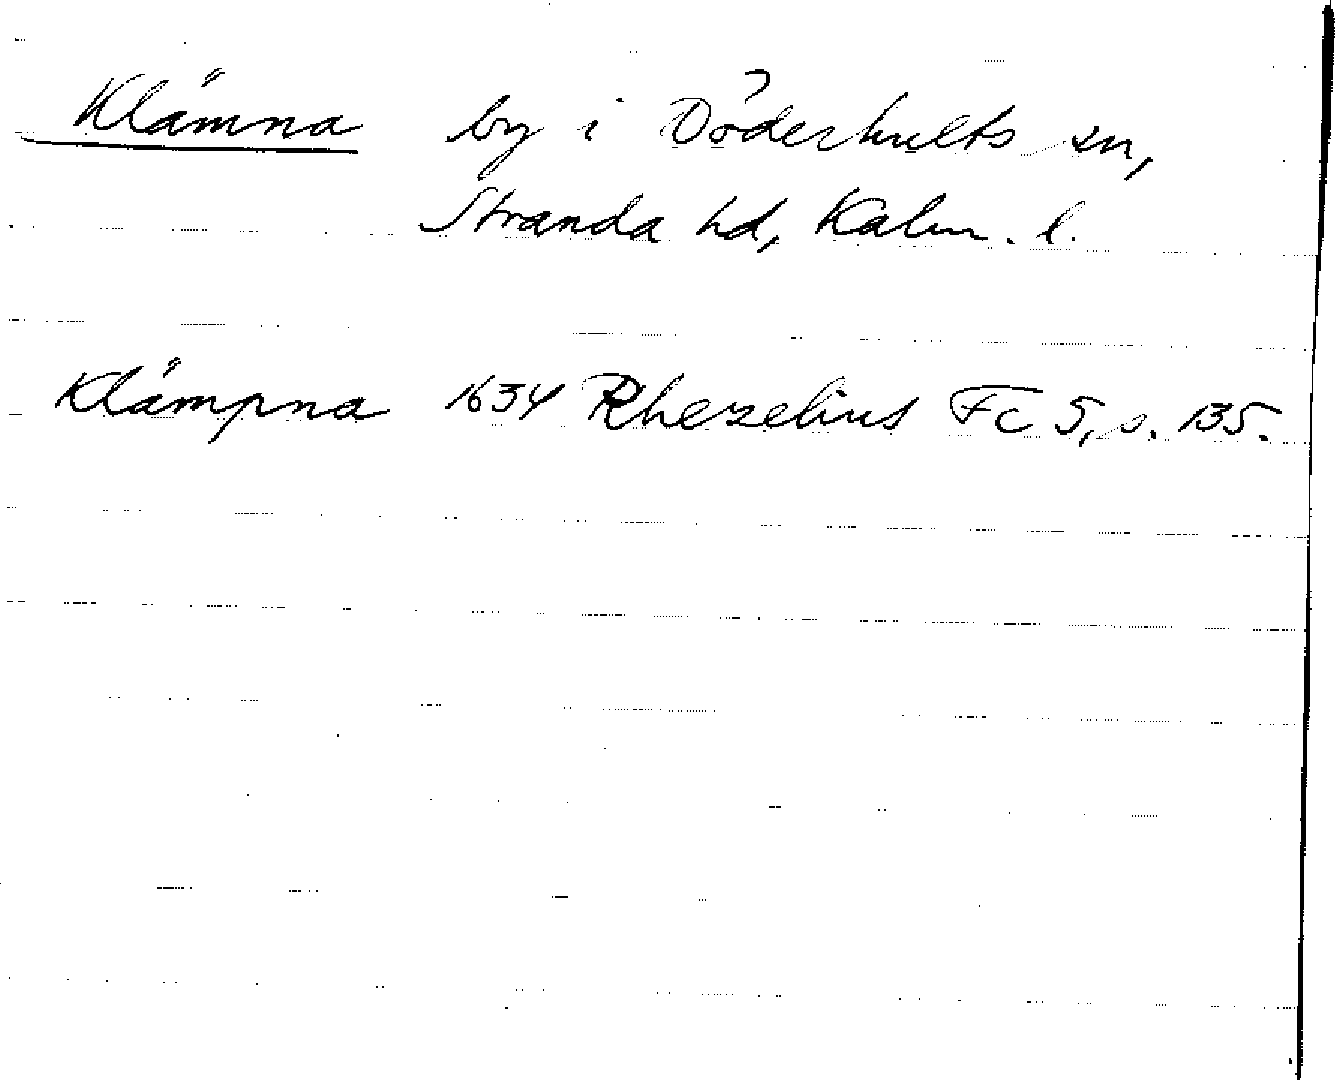 Klämna by i Döderhults sn,
Stranda hd, Kalm. l.
Klämpna 1634 Rhezelius Fc 5, s. 135.